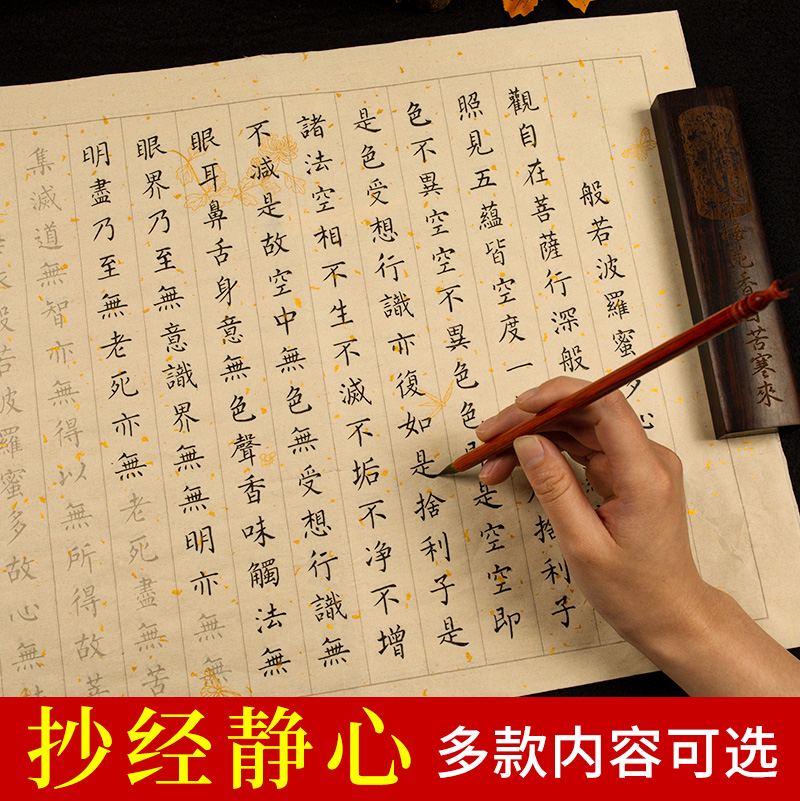 般若波羅蜜多心
觀自在菩薩行深般
照見五蘊皆空度一
捨利子
色不異空空不異色色即是空空即
是色受想行識亦復如是捨利子是
諸法空相不生不滅不垢不净不增
不減是故空中無色無受想行識無
眼耳鼻舌身意無色聲香味觸法無
眼界乃至無意識界無無明亦無無
明盡乃至無老死亦無老死盡無苦
集滅道無智亦無得以無所得故菩
般若波羅蜜多故心無
香自苦寒來
抄经静心 多款内容可选